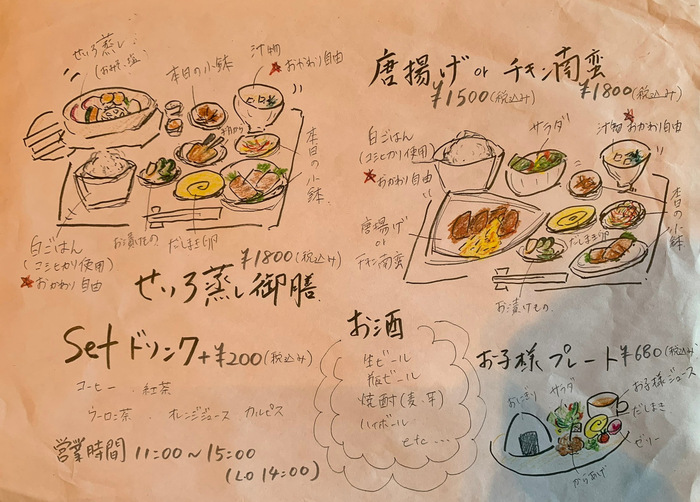 せいろ蒸し
(お野菜、塩)
本日の小鉢
汁物
★おかわり自由
本日の小鉢
白ごはん
(コシヒカリ使用)
★おかわり自由
お漬けもの
だしまき卵
¥1800(税込み)
せいろ蒸し御膳
唐揚げ or チキン南蛮
¥1500(税込み)
¥1800(税込み)
白ごはん
(コシヒカリ使用)
★おかわり自由
サラダ
汁物★おかわり自由
本日の小鉢
唐揚げ
or
チキン南蛮
だしまき卵
お漬けもの
Setドリンク+¥200(税込み)
コーヒー 紅茶
ウーロン茶 オレンジジュース カルピス
営業時間 11:00〜15:00
(LO 14:00)
お酒
生ビール
瓶ビール
焼酎(麦、芋)
ハイボール
etc...
お子様プレート¥680(税込み)
おにぎり
サラダ
お子様ジュース
だしまき
ゼリー
からあげ